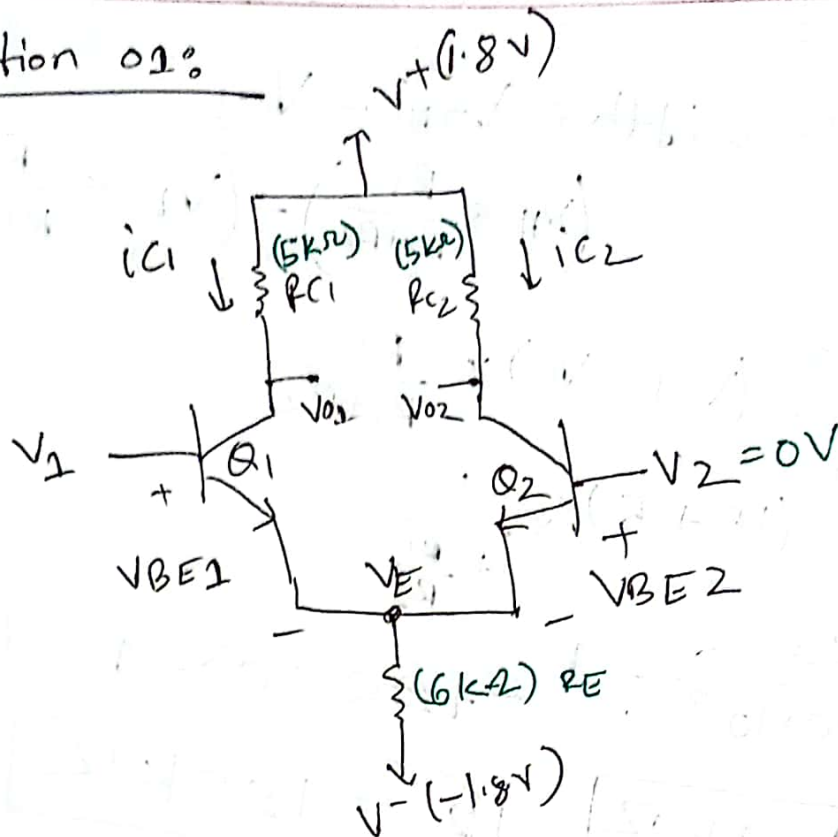 tion 01:
V+(1.8V)
iC1 (5KΩ) (5KΩ) iC2
RC1 RC2
V01 V02
V1 Q1 Q2 V2=0V
+ +
VBE1 VE VBE2
- -
(6KΩ) RE
V-(-1.8V)